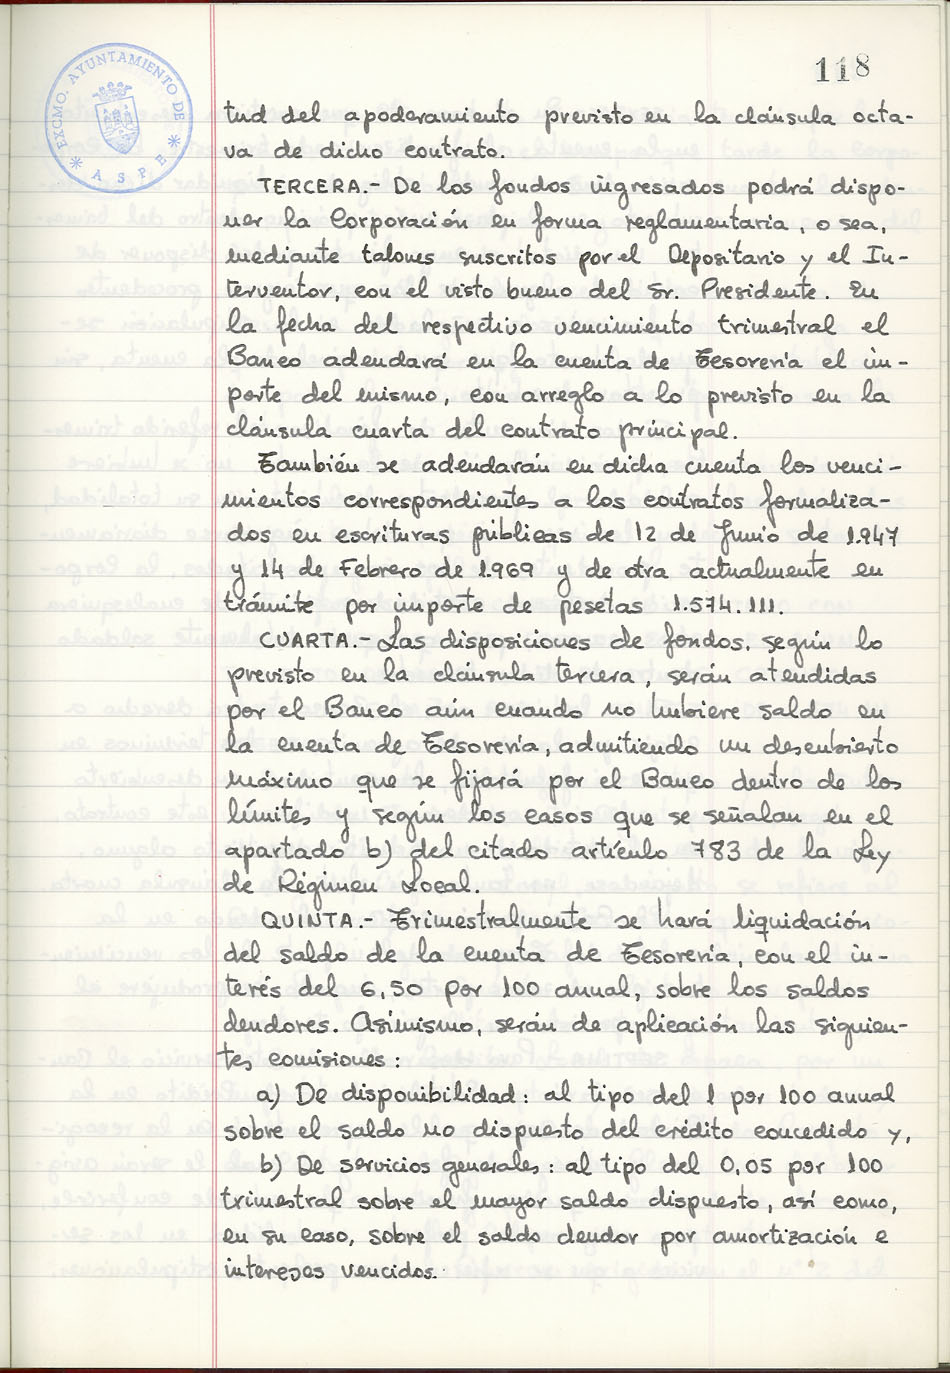 118
EXCMO. AYUNTAMIENTO DE
* ASPE *
tud del apoderamiento previsto en la cláusula octa-
va de dicho contrato.
TERCERA.- De los fondos ingresados podrá dispo-
ner la Corporación en forma reglamentaria, o sea,
mediante talones suscritos por el Depositario y el In-
terventor, con el visto bueno del Sr. Presidente. En
la fecha del respectivo vencimiento trimestral el
Banco adeudará en la cuenta de Tesorería el im-
porte del mismo, con arreglo a lo previsto en la
cláusula cuarta del contrato principal.
También se adeudarán en dicha cuenta los venci-
mientos correspondientes a los contratos formaliza-
dos en escrituras públicas de 12 de Junio de 1.947
y 14 de Febrero de 1.969 y de otra actualmente en
trámite por importe de pesetas 1.574.111.
CUARTA.- Las disposiciones de fondos, según lo
previsto en la cláusula tercera, serán atendidas
por el Banco aún cuando no hubiere saldo en
la cuenta de Tesorería, admitiendo un descubierto
máximo que se fijará por el Banco dentro de los
límites y según los casos que se señalan en el
apartado b) del citado artículo 783 de la Ley
de Régimen Local.
QUINTA.- Trimestralmente se hará liquidación
del saldo de la cuenta de Tesorería, con el in-
terés del 6,50 por 100 anual, sobre los saldos
deudores. Asímismo, serán de aplicación las siguien-
tes comisiones:
a) De disponibilidad: al tipo del 1 por 100 anual
sobre el saldo no dispuesto del crédito concedido y,
b) De servicios generales: al tipo del 0,05 por 100
trimestral sobre el mayor saldo dispuesto, así como,
en su caso, sobre el saldo deudor por amortización e
intereses vencidos.